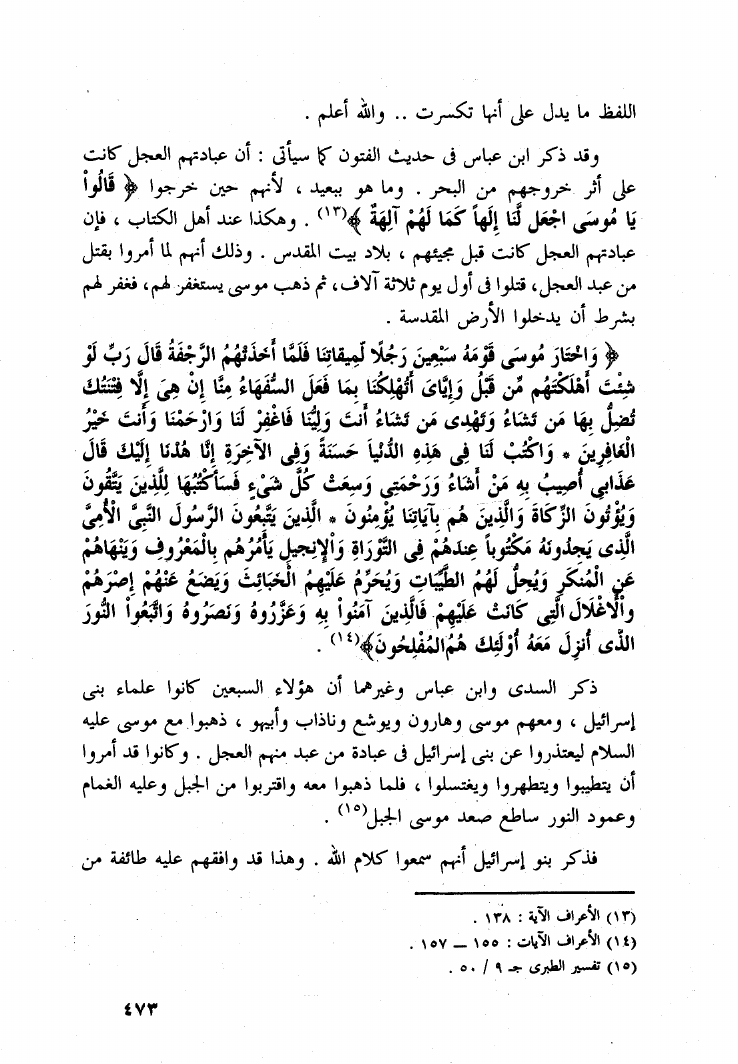 اللفظ ما يدل على أنها تكسرت .. والله أعلم .
وقد ذكر ابن عباس فى حديث الفتون كما سيأتى : أن عبادتهم العجل كانت
على أثر خروجهم من البحر . وما هو ببعيد ، لأنهم حين خرجوا ﴿ قَالُواْ
يَا مُوسَى اجْعَل لَّنَا إِلَهاً كَمَا لَهُمْ آلِهَةٌ ﴾(١٣) . وهكذا عند أهل الكتاب ، فإن
عبادتهم العجل كانت قبل مجيئهم ، بلاد بيت المقدس . وذلك أنهم لما أمروا بقتل
من عبد العجل، قتلوا فى أول يوم ثلاثة آلاف، ثم ذهب موسى يستغفر لهم، فغفر لهم
بشرط أن يدخلوا الأرض المقدسة .
﴿ وَاخْتَارَ مُوسَى قَوْمَهُ سَبْعِينَ رَجُلًا لِّمِيقَاتِنَا فَلَمَّا أَخَذَتْهُمُ الرَّجْفَةُ قَالَ رَبِّ لَوْ
شِئْتَ أَهْلَكْتَهُم مِّن قَبْلُ وَإِيَّاىَ أَتُهْلِكُنَا بِمَا فَعَلَ السُّفَهَاءُ مِنَّا إِنْ هِىَ إِلَّا فِتْنَتُكَ
تُضِلُّ بِهَا مَن تَشَاءُ وَتَهْدِى مَن تَشَاءُ أَنتَ وَلِيُّنَا فَاغْفِرْ لَنَا وَارْحَمْنَا وَأَنتَ خَيْرُ
الْغَافِرِينَ * وَاكْتُبْ لَنَا فِى هَذِهِ الدُّنْيَا حَسَنَةً وَفِى الآخِرَةِ إِنَّا هُدْنَا إِلَيْكَ قَالَ
عَذَابِى أُصِيبُ بِهِ مَنْ أَشَاءُ وَرَحْمَتِى وَسِعَتْ كُلَّ شَىْءٍ فَسَأَكْتُبُهَا لِلَّذِينَ يَتَّقُونَ
وَيُؤْتُونَ الزَّكَاةَ وَالَّذِينَ هُم بِآيَاتِنَا يُؤْمِنُونَ * الَّذِينَ يَتَّبِعُونَ الرَّسُولَ النَّبِىَّ الْأُمِّىَّ
الَّذِى يَجِدُونَهُ مَكْتُوباً عِندَهُمْ فِى التَّوْرَاةِ وَالْإِنجِيلِ يَأْمُرُهُم بِالْمَعْرُوفِ وَيَنْهَاهُمْ
عَنِ الْمُنكَرِ وَيُحِلُّ لَهُمُ الطَّيِّبَاتِ وَيُحَرِّمُ عَلَيْهِمُ الْخَبَائِثَ وَيَضَعُ عَنْهُمْ إِصْرَهُمْ
وَالْأَغْلَالَ الَّتِى كَانَتْ عَلَيْهِمْ فَالَّذِينَ آمَنُواْ بِهِ وَعَزَّرُوهُ وَنَصَرُوهُ وَاتَّبَعُواْ النُّورَ
الَّذِى أُنزِلَ مَعَهُ أُوْلَئِكَ هُمُ الْمُفْلِحُونَ ﴾(١٤) .
ذكر السدى وابن عباس وغيرهما أن هؤلاء السبعين كانوا علماء بنى
إسرائيل ، ومعهم موسى وهارون ويوشع وناذاب وأبيهو ، ذهبوا مع موسى عليه
السلام ليعتذروا عن بنى إسرائيل فى عبادة من عبد منهم العجل . وكانوا قد أمروا
أن يتطيبوا ويتطهروا ويغتسلوا ، فلما ذهبوا معه واقتربوا من الجبل وعليه الغمام
وعمود النور ساطع صعد موسى الجبل(١٥) .
فذكر بنو إسرائيل أنهم سمعوا كلام الله . وهذا قد وافقهم عليه طائفة من
(١٣) الأعراف الآية : ١٣٨ .
(١٤) الأعراف الآيات : ١٥٥ ــ ١٥٧ .
(١٥) تفسير الطبرى جـ ٩ / ٥٠ .
٤٧٣